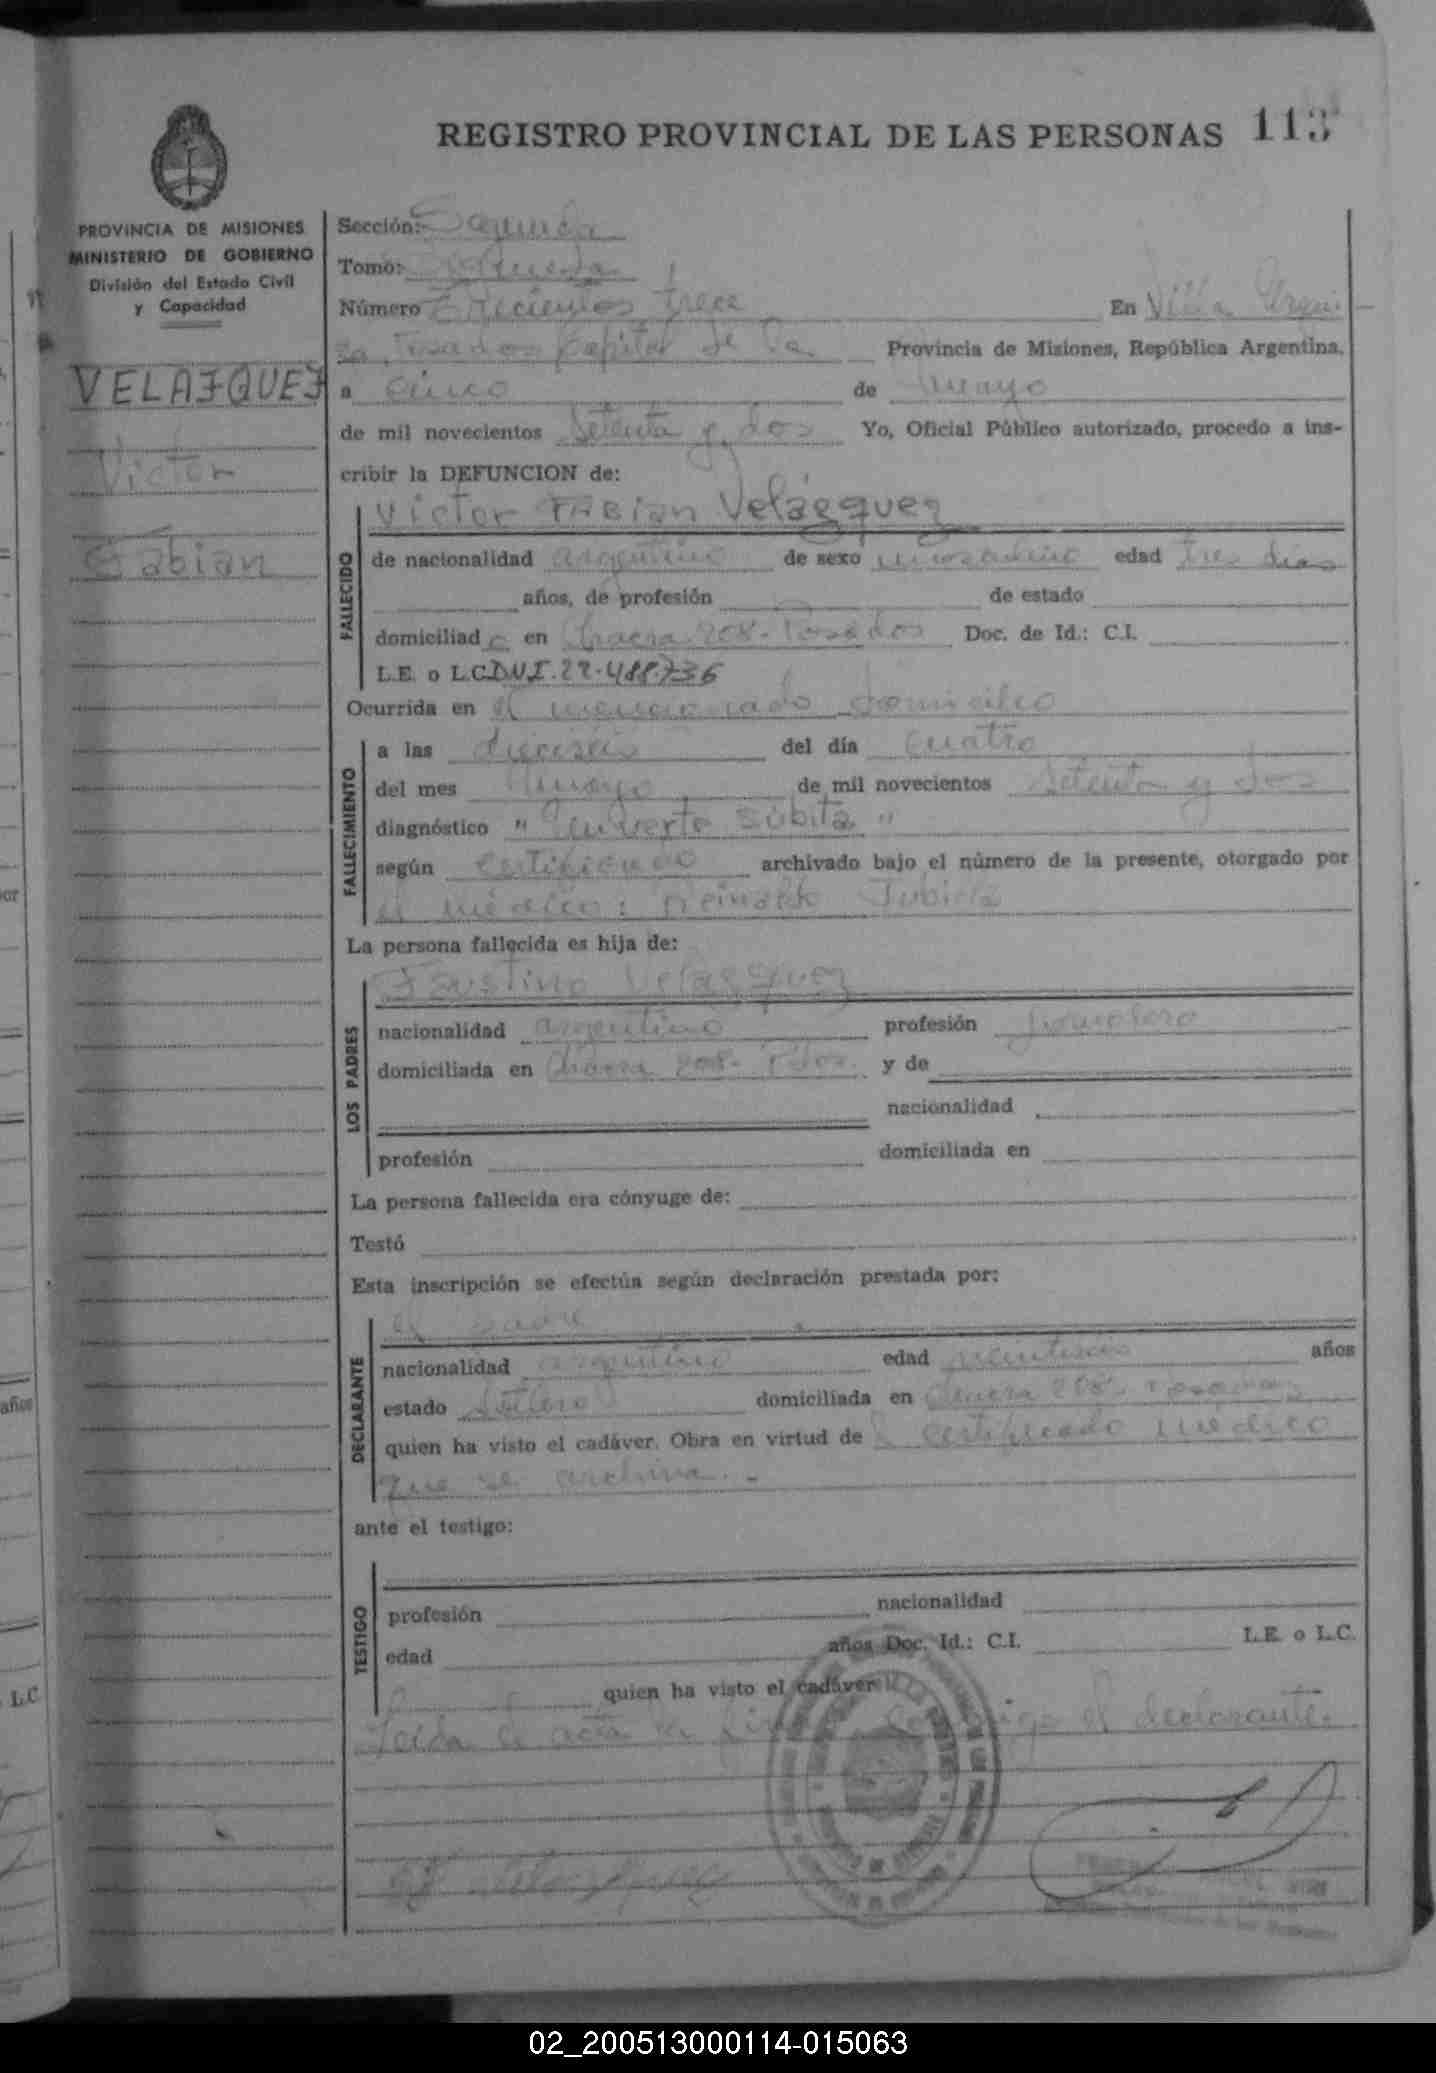 REGISTRO PROVINCIAL DE LAS PERSONAS 113
PROVINCIA DE MISIONES
MINISTERIO DE GOBIERNO
División del Estado Civil
y Capacidad
VELAZQUEZ
Victor
Fabian
Sección: Segunda
Tomo:
Número Trecientos trece En Villa Urqui-
za, Posadas Capital de la Provincia de Misiones, República Argentina,
a cinco de mayo
de mil novecientos setenta y dos Yo, Oficial Público autorizado, procedo a ins-
cribir la DEFUNCION de:
Victor FABian Velázquez
FALLECIDO
de nacionalidad argentino de sexo masculino edad tres días
años, de profesión de estado
domiciliado en Chacra 208- Posadas Doc. de Id.: C.I.
L.E. o L.C. DNI. 22.488.736
Ocurrida en el mencionado domicilio
FALLECIMIENTO
a las dieciséis del día cuatro
del mes mayo de mil novecientos setenta y dos
diagnóstico "muerte súbita"
según certificado archivado bajo el número de la presente, otorgado por
el médico: Reinaldo
La persona fallecida es hija de:
LOS PADRES
Faustino Velázquez
nacionalidad argentino profesión jornalero
domiciliada en Chacra 208- Pdas. y de
nacionalidad
profesión domiciliada en
La persona fallecida era cónyuge de:
Testó
Esta inscripción se efectúa según declaración prestada por:
DECLARANTE
el padre
nacionalidad argentino edad veintiséis años
estado soltero domiciliada en Chacra 208- Posadas
quien ha visto el cadáver. Obra en virtud del certificado médico
que se archiva.-
ante el testigo:
TESTIGO
profesión nacionalidad
edad años Doc. Id.: C.I. L.E. o L.C.
quien ha visto el cadáver
Leída la acta la firma conmigo el declarante.
02_200513000114-015063